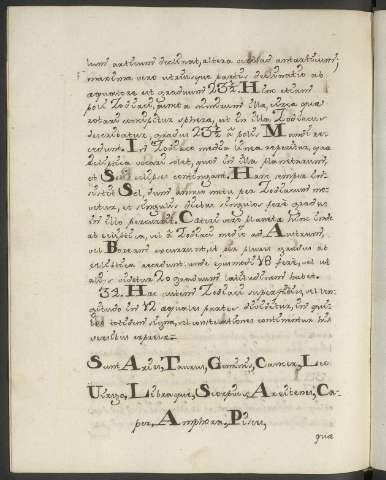 lum arcticum declinat, altera versus antarcticum,
maxima vero utriusque partis declinatio ab
æquatore est graduum 23½. Hinc etiam
poli Zodiaci, puncta nimirum illa, circa quæ
rotari concipitur sphæra, ut in illa Zodiacus
describatur, gradus 23½ a polis Mundi re-
cedunt. In Zodiaco media linea reperitur, quæ
Ecliptica vocari solet, quod in illa planetarum,
et Solis eclipses contingant. Hanc semper in-
sistit Sol, dum annuo motu per Zodiacum mo-
vetur, et singulis diebus singulos fere gradus
in illo percurrit. Cæteri vero planetæ hinc inde
ab ecliptica, vel a Zodiaci medio ad Austrum,
vel Boream excurrunt, et plures gradus ab
ecliptica recedunt: unde quamobrem 18 fere, vel ut
aliis videtur 20 graduum latitudinem habet.
32. Hæc autem Zodiaci superficies, vel lon-
gitudo in 12 æquales partes dividitur, in qui-
bus totidem signa, vel constellationes continentur his
versibus expressæ.
Sunt Aries, Taurus, Gemini, Cancer, Leo
Virgo, Libraque, Scorpius, Arcitenens, Ca-
per, Amphora, Pisces,
quæ